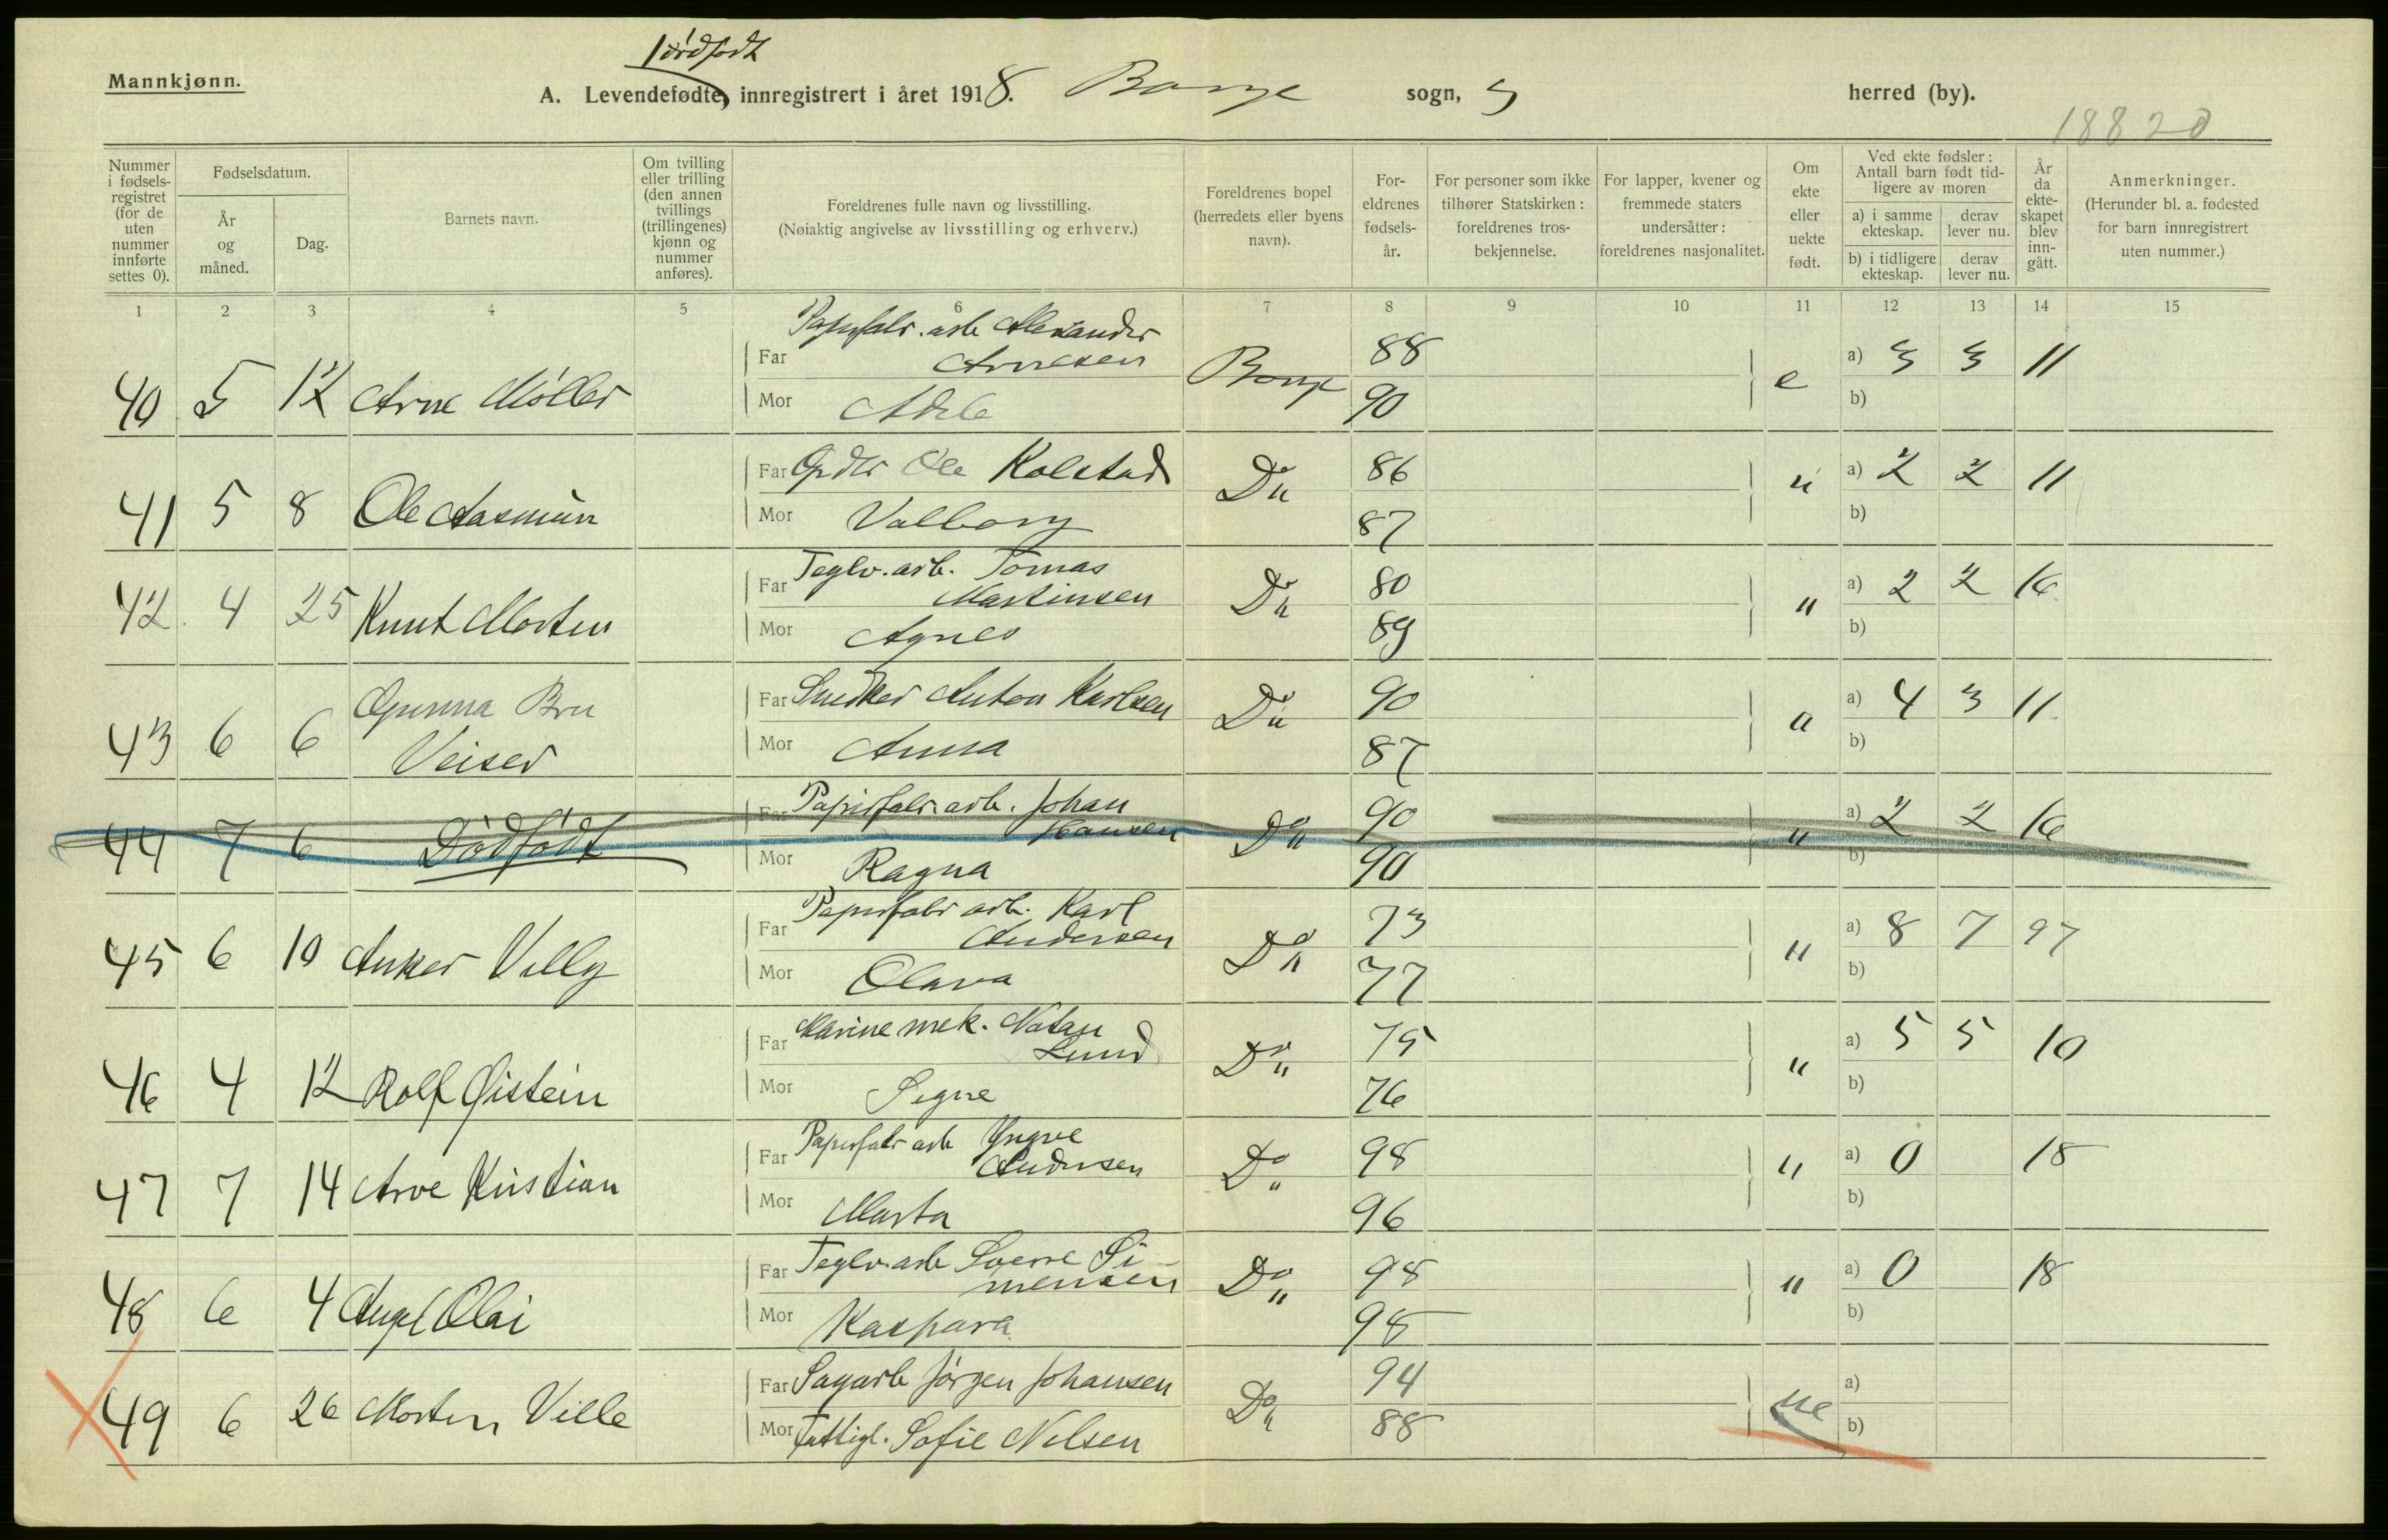 1 dødfødt
Mannkjønn.
A. Levendefødte, innregistrert i året 1918. Borge sogn, herred (by).
18820
Nummer i fødsels-registret (for de uten nummer innførte settes 0).
Fødselsdatum.
År og måned.
Dag.
Barnets navn.
Om tvilling eller trilling (den annen tvillings (trillingenes) kjønn og nummer anføres).
Foreldrenes fulle navn og livsstilling.
(Nøiaktig angivelse av livsstilling og erhverv.)
Foreldrenes bopel (herredets eller byens navn).
For-eldrenes fødsels-år.
For personer som ikke tilhører Statskirken: foreldrenes tros-bekjennelse.
For lapper, kvener og fremmede staters undersåtter: foreldrenes nasjonalitet.
Om ekte eller uekte født.
Ved ekte fødsler: Antall barn født tid-ligere av moren
a) i samme ekteskap.
derav lever nu.
b) i tidligere ekteskap.
derav lever nu.
År da ekte-skapet blev inn-gått.
Anmerkninger.
(Herunder bl. a. fødested for barn innregistrert uten nummer.)
1 2 3 4 5 6 7 8 9 10 11 12 13 14 15
Papirfabr. arb Alexander
Far Arnesen 88
40 5 12 Arne Møller Borge e a) 3 3 11
Mor Adele 90 b)
Far Grdbr Ole Kolstad 86
41 5 8 Ole Aasmun Do " a) 2 2 11
Mor Valborg 87 b)
Teglv. arb. Tomas
Far Martinsen 80
42 4 25 Knut Morten Do " a) 2 2 16
Mor Agnes 89 b)
Far Snedker Anton Karlsen 90
43 6 6 Gunnna Bru Do " a) 4 3 11
Veiser
Mor Anna 87 b)
Papirfabr. arb. Johan
Far Hansen 90
44 7 6 Dødfødt Do " a) 2 2 16
Mor Ragna 90 b)
Papirfabr arb. Karl
Far Andersen 73
45 6 10 Anker Villy Do " a) 8 7 97
Mor Olava 77 b)
Marine mek. Natan
Far Lund 75
46 4 12 Rolf Øistein Do " a) 5 5 10
Mor Signe 76 b)
Papirfabr arb Yngve
Far Andersen 98
47 7 14 Arve Kristian Do " a) 0 18
Mor Marta 96 b)
Far Teglv. arb Sverre Si-
mensen 98
48 6 4 Aage Olai Do " a) 0 18
Mor Kaspara 98 b)
Far Sagarb Jørgen Johansen 94
49 6 26 Morten Ville Do ue a)
Mor Fattigl. Sofie Nilsen 88 b)